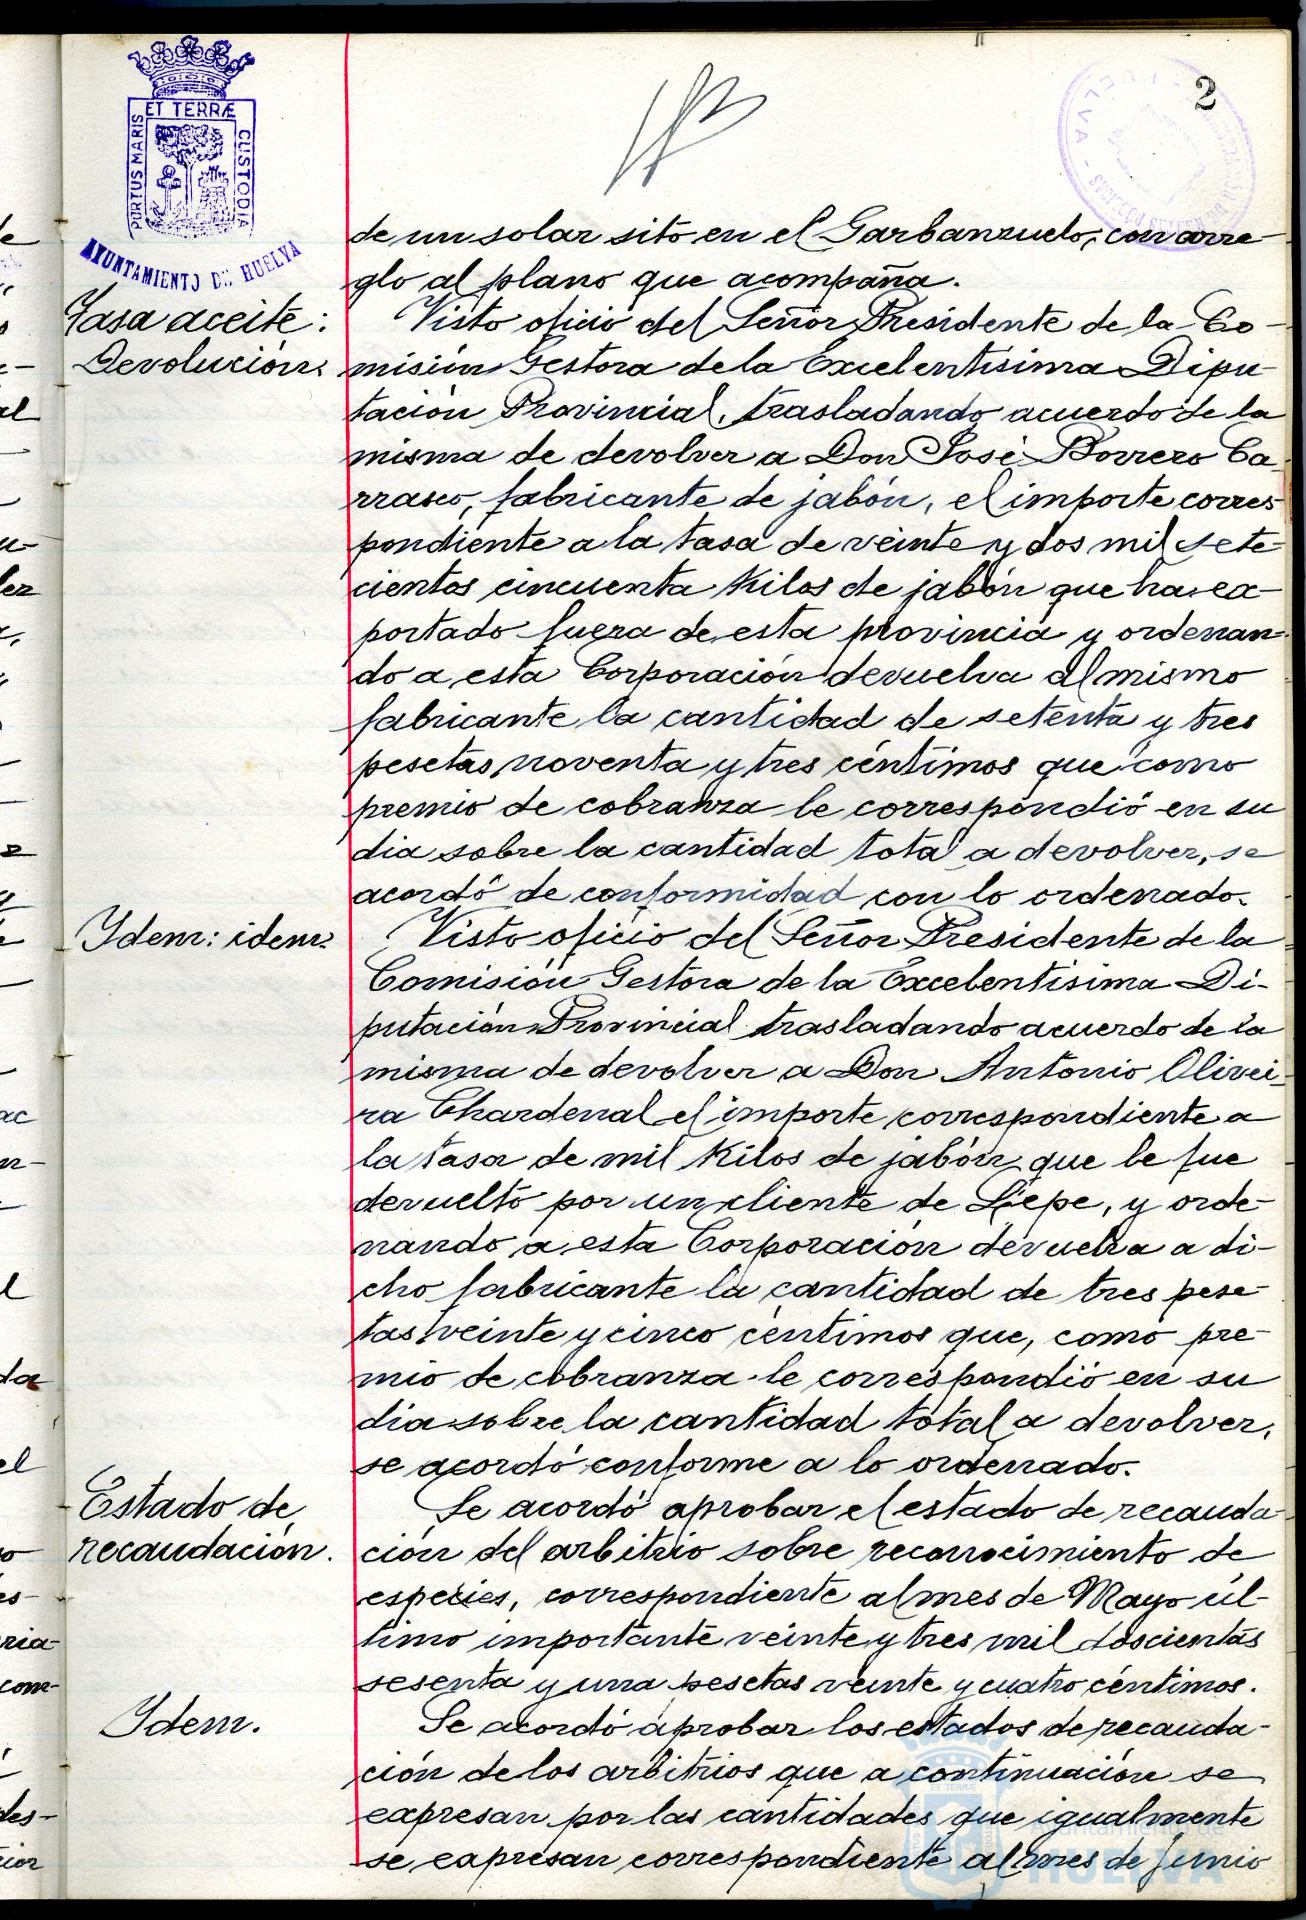 ET TERRÆ
PORTUS MARIS
CUSTODIA
AYUNTAMIENTO DE HUELVA
2
de un solar sito en el Garbanzuelo, con arre-
glo al plano que acompaña.
Tasa aceite:
Devolución.
Visto oficio del Señor Presidente de la Co-
misión Gestora de la Excelentísima Dipu-
tación Provincial, trasladando acuerdo de la
misma de devolver a Don José Borrero Ca-
rrasco, fabricante de jabón, el importe corres-
pondiente a la tasa de veinte y dos mil sete-
cientos cincuenta Kilos de jabón que ha ex-
portado fuera de esta provincia y ordenan-
do a esta Corporación devuelva al mismo
fabricante la cantidad de setenta y tres
pesetas noventa y tres céntimos que como
premio de cobranza le correspondió en su
dia sobre la cantidad total a devolver, se
acordó de conformidad con lo ordenado.
Ydem: idem.
Visto oficio del Señor Presidente de la
Comisión Gestora de la Excelentísima Di-
putación Provincial trasladando acuerdo de la
misma de devolver a Don Antonio Olivei-
ra Chardenal el importe correspondiente a
la tasa de mil Kilos de jabón que le fue
devuelto por un cliente de Lepe, y orde-
nando a esta Corporación devuelva a di-
cho fabricante la cantidad de tres pese-
tas veinte y cinco céntimos que, como pre-
mio de cobranza le correspondió en su
dia sobre la cantidad total a devolver,
se acordó conforme a lo ordenado.
Estado de
recaudación.
Se acordó aprobar el estado de recauda-
ción del arbitrio sobre reconocimiento de
especies, correspondiente al mes de Mayo úl-
timo importante veinte y tres mil doscientas
sesenta y una pesetas veinte y cuatro céntimos.
Ydem.
Se acordó aprobar los estados de recauda-
ción de los arbitrios que a continuación se
expresan por las cantidades que igualmente
se expresan correspondiente al mes de Junio
Ayuntamiento de
HUELVA